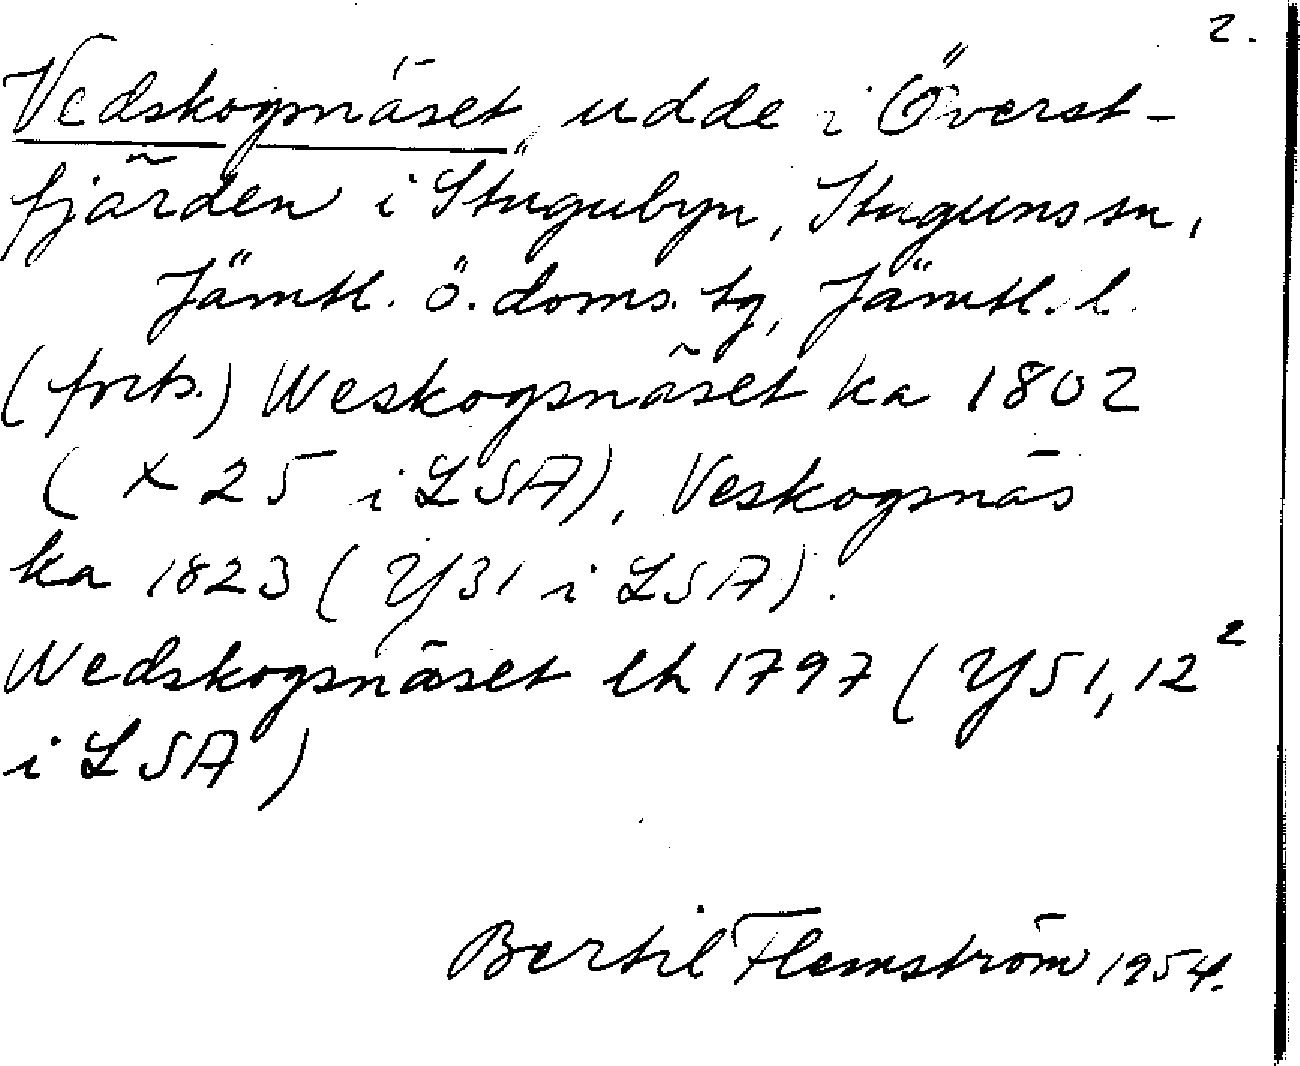 2.
Vedskogsnäset, udde i Överst-
fjärden i Stugubyn, Stuguns sn,
Jämtl. ö. doms. tg, Jämtl. l.
(forts.) Weskogsnäset ka 1802
(X25 i LSA), Veskogsnäs
ka 1823 (Y31 i LSA).
Wedskogsnäset lh 1797 (Y51, 12²
i LSA)
Bertil Flemström 1954.